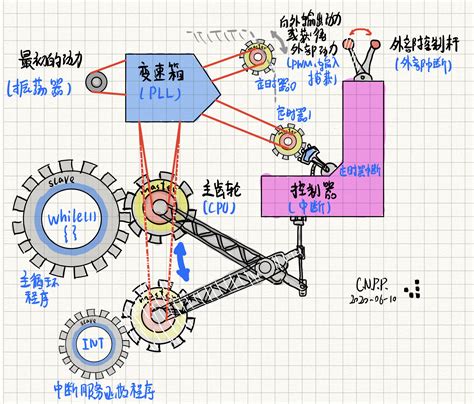 最初的动力
(振荡器)
变速箱
(PLL)
向外输出动力
或获得
外部动力
(PWM,输入
捕获)
定时器0
外部控制杆
(外部中断)
定时器1
定时器中断
控制器
(中断)
slave
while(1)
{ }
主循环
程序
master
主齿轮
(CPU)
master
slave
INT
中断服务函数程序
C.N.P.P.
2020-06-10